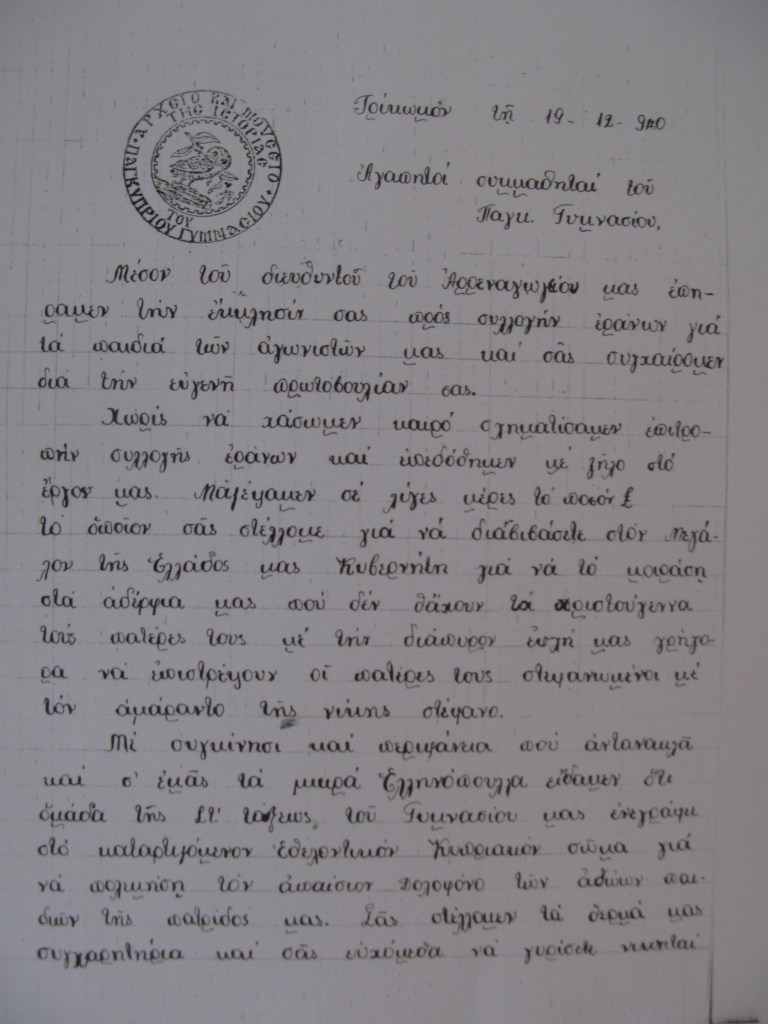 ΑΡΧΕΙΟ ΚΑΙ ΜΟΥΣΕΙΟ
ΤΗΣ ΙΣΤΟΡΙΑΣ
ΤΟΥ
ΠΑΓΚΥΠΡΙΟΥ ΓΥΜΝΑΣΙΟΥ
Τρίκωμον τῇ 19-12-940
Ἀγαπητοί συμμαθηταί τοῦ
Παγκ. Γυμνασίου,
Μέσον τοῦ διευθυντοῦ τοῦ Ἀρρεναγωγείου μας ἐπή-
ραμεν τήν ἔκκλησίν σας πρός συλλογήν ἐράνων γιά
τά παιδιά τῶν ἀγωνιστῶν μας καί σᾶς συγχαίρομεν
διά τήν εὐγενῆ πρωτοβουλίαν σας.
Χωρίς νά χάσωμεν καιρό σχηματίσαμεν ἐπιτρο-
πήν συλλογῆς ἐράνων καί ἐπεδόθημεν μέ ζῆλο στό
ἔργον μας. Μαζέψαμεν σέ λίγες μέρες τό ποσόν £
τό ὁποῖον σᾶς στέλλομε γιά νά διαβιβάσετε στόν Μεγά-
λον τῆς Ἑλλάδος μας Κυβερνήτη γιά νά τό μοιράση
στά ἀδέρφια μας πού δέν θἄχουν τά χριστούγεννα
τούς πατέρες τους μέ τήν διάπυρον εὐχή μας γρήγο-
ρα νά ἐπιστρέψουν οἱ πατέρες τους στεφανωμένοι μέ
τόν ἀμάραντο τῆς νίκης στέφανο.
Μέ συγκίνησι καί περηφάνεια πού ἀντανακλᾶ
καί σ' ἐμᾶς τά μικρά Ἑλληνόπουλα εἴδαμεν ὅτι
ὁμάδα τῆς ΣΤ' τάξεως τοῦ Γυμνασίου μας ἐνεγράφη
στό καταρτιζόμενον ἐθελοντικόν Κυπριακόν σῶμα γιά
νά πολεμήση τόν ἀπαίσιον δολοφόνο τῶν ἀθώων παι-
διῶν τῆς πατρίδος μας. Σᾶς στέλλομεν τά θερμά μας
συγχαρητήρια καί σᾶς εὐχόμεθα νά γυρίσετε νικηταί